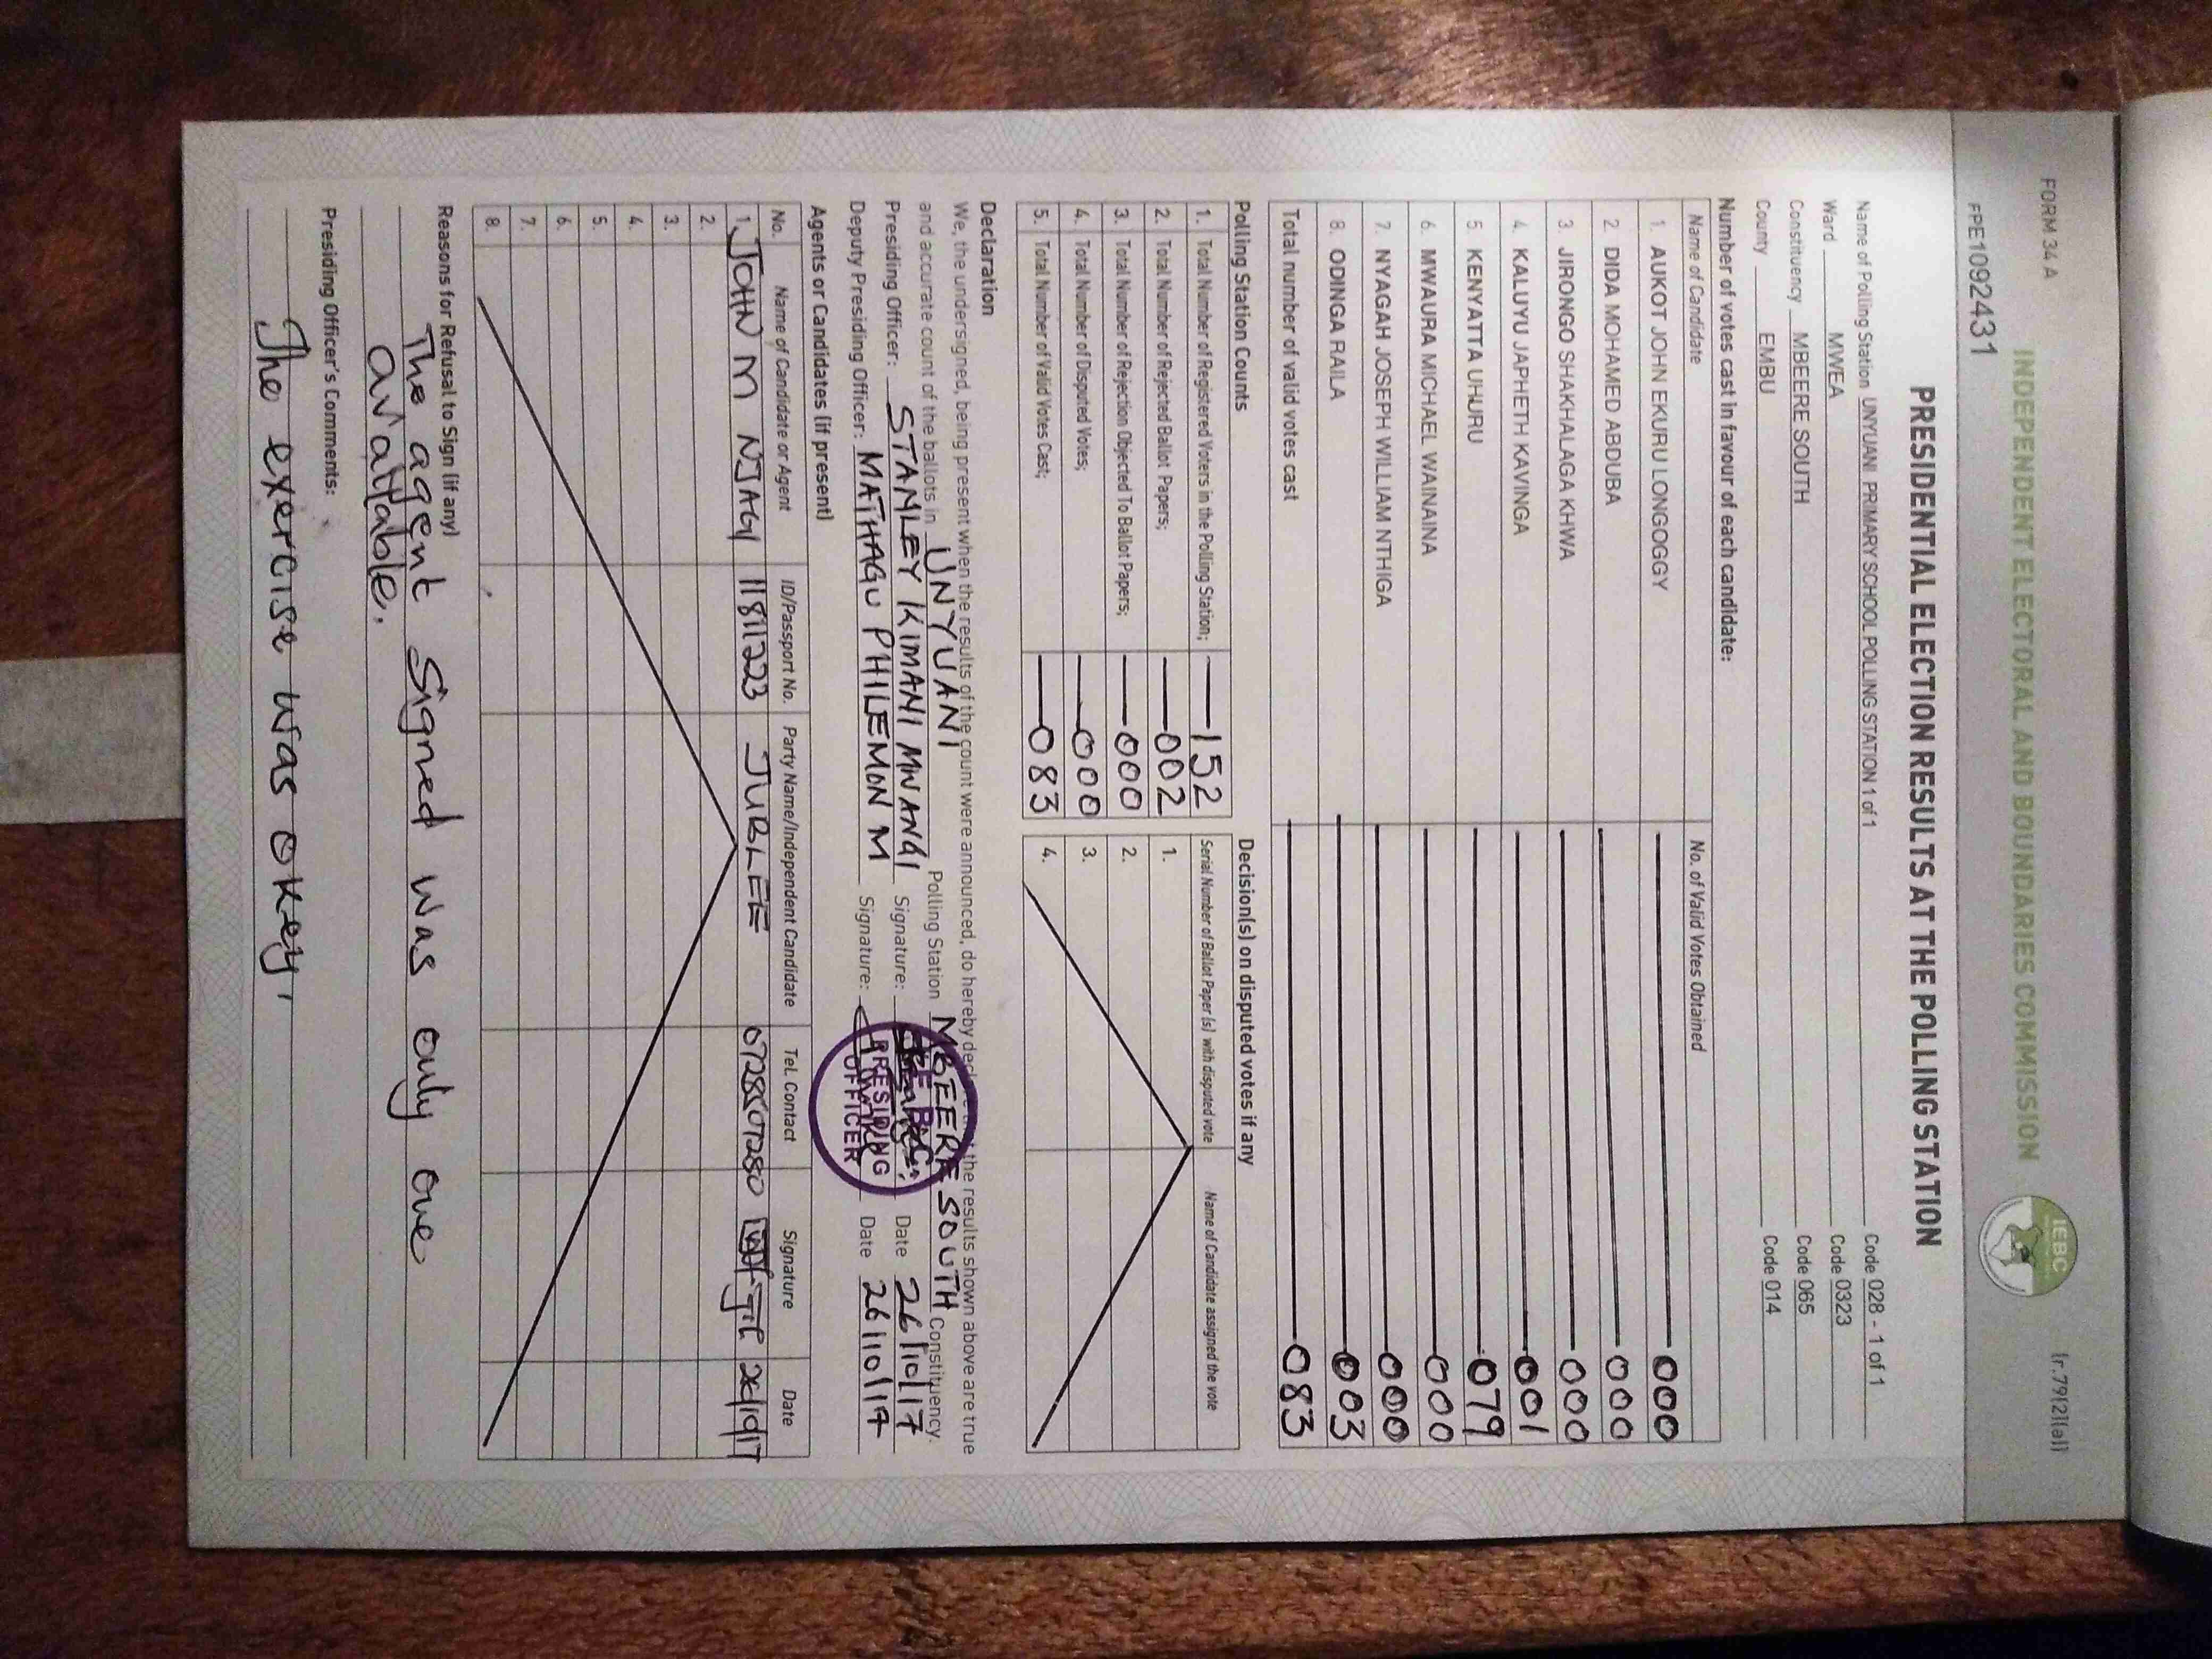 FORM 34 A
(r.79(2)(a))
INDEPENDENT ELECTORAL AND BOUNDARIES COMMISSION
IEBC
FPE1092431
PRESIDENTIAL ELECTION RESULTS AT THE POLLING STATION
Name of Polling Station UNYUANI PRIMARY SCHOOL POLLING STATION 1 of 1 Code 028 - 1 of 1
Ward MWEA Code 0323
Constituency MBEERE SOUTH Code 065
County EMBU Code 014
Number of votes cast in favour of each candidate:
Name of Candidate No. of Valid Votes Obtained
1. AUKOT JOHN EKURU LONGOGGY 000
2. DIDA MOHAMED ABDUBA 000
3. JIRONGO SHAKHALAGA KHWA 000
4. KALUYU JAPHETH KAVINGA 001
5 KENYATTA UHURU 079
6. MWAURA MICHAEL WAINAINA 000
7. NYAGAH JOSEPH WILLIAM NTHIGA 000
8. ODINGA RAILA 003
Total number of valid votes cast 083
Polling Station Counts
1. Total Number of Registered Voters in the Polling Station; 152
2. Total Number of Rejected Ballot Papers; 002
3. Total Number of Rejection Objected To Ballot Papers; 000
4. Total Number of Disputed Votes; 000
5. Total Number of Valid Votes Cast; 083
Decision(s) on disputed votes if any
Serial Number of Ballot Paper (s) with disputed vote Name of Candidate assigned the vote
1.
2.
3.
4.
Declaration
We, the undersigned, being present when the results of the count were announced, do hereby the results shown above are true
and accurate count of the ballots in UNYUANI Polling Station MBEERE SOUTH Constituency.
Presiding Officer: STANLEY KIMANI MWANGI Signature: Date 26/10/17
Deputy Presiding Officer: MATHAGU PHILEMON M Signature: Date 26/10/17
PRESIDING
OFFICER
Agents or Candidates (if present)
No. Name of Candidate or Agent ID/Passport No. Party Name/Independent Candidate Tel. Contact Signature Date
1. JOHN M NJAGI 11811223 JUBLEE
2.
3.
4.
5.
6.
7.
8.
Reasons for Refusal to Sign (if any)
The agent signed was only one
available.
Presiding Officer's Comments:
The exercise was okey,